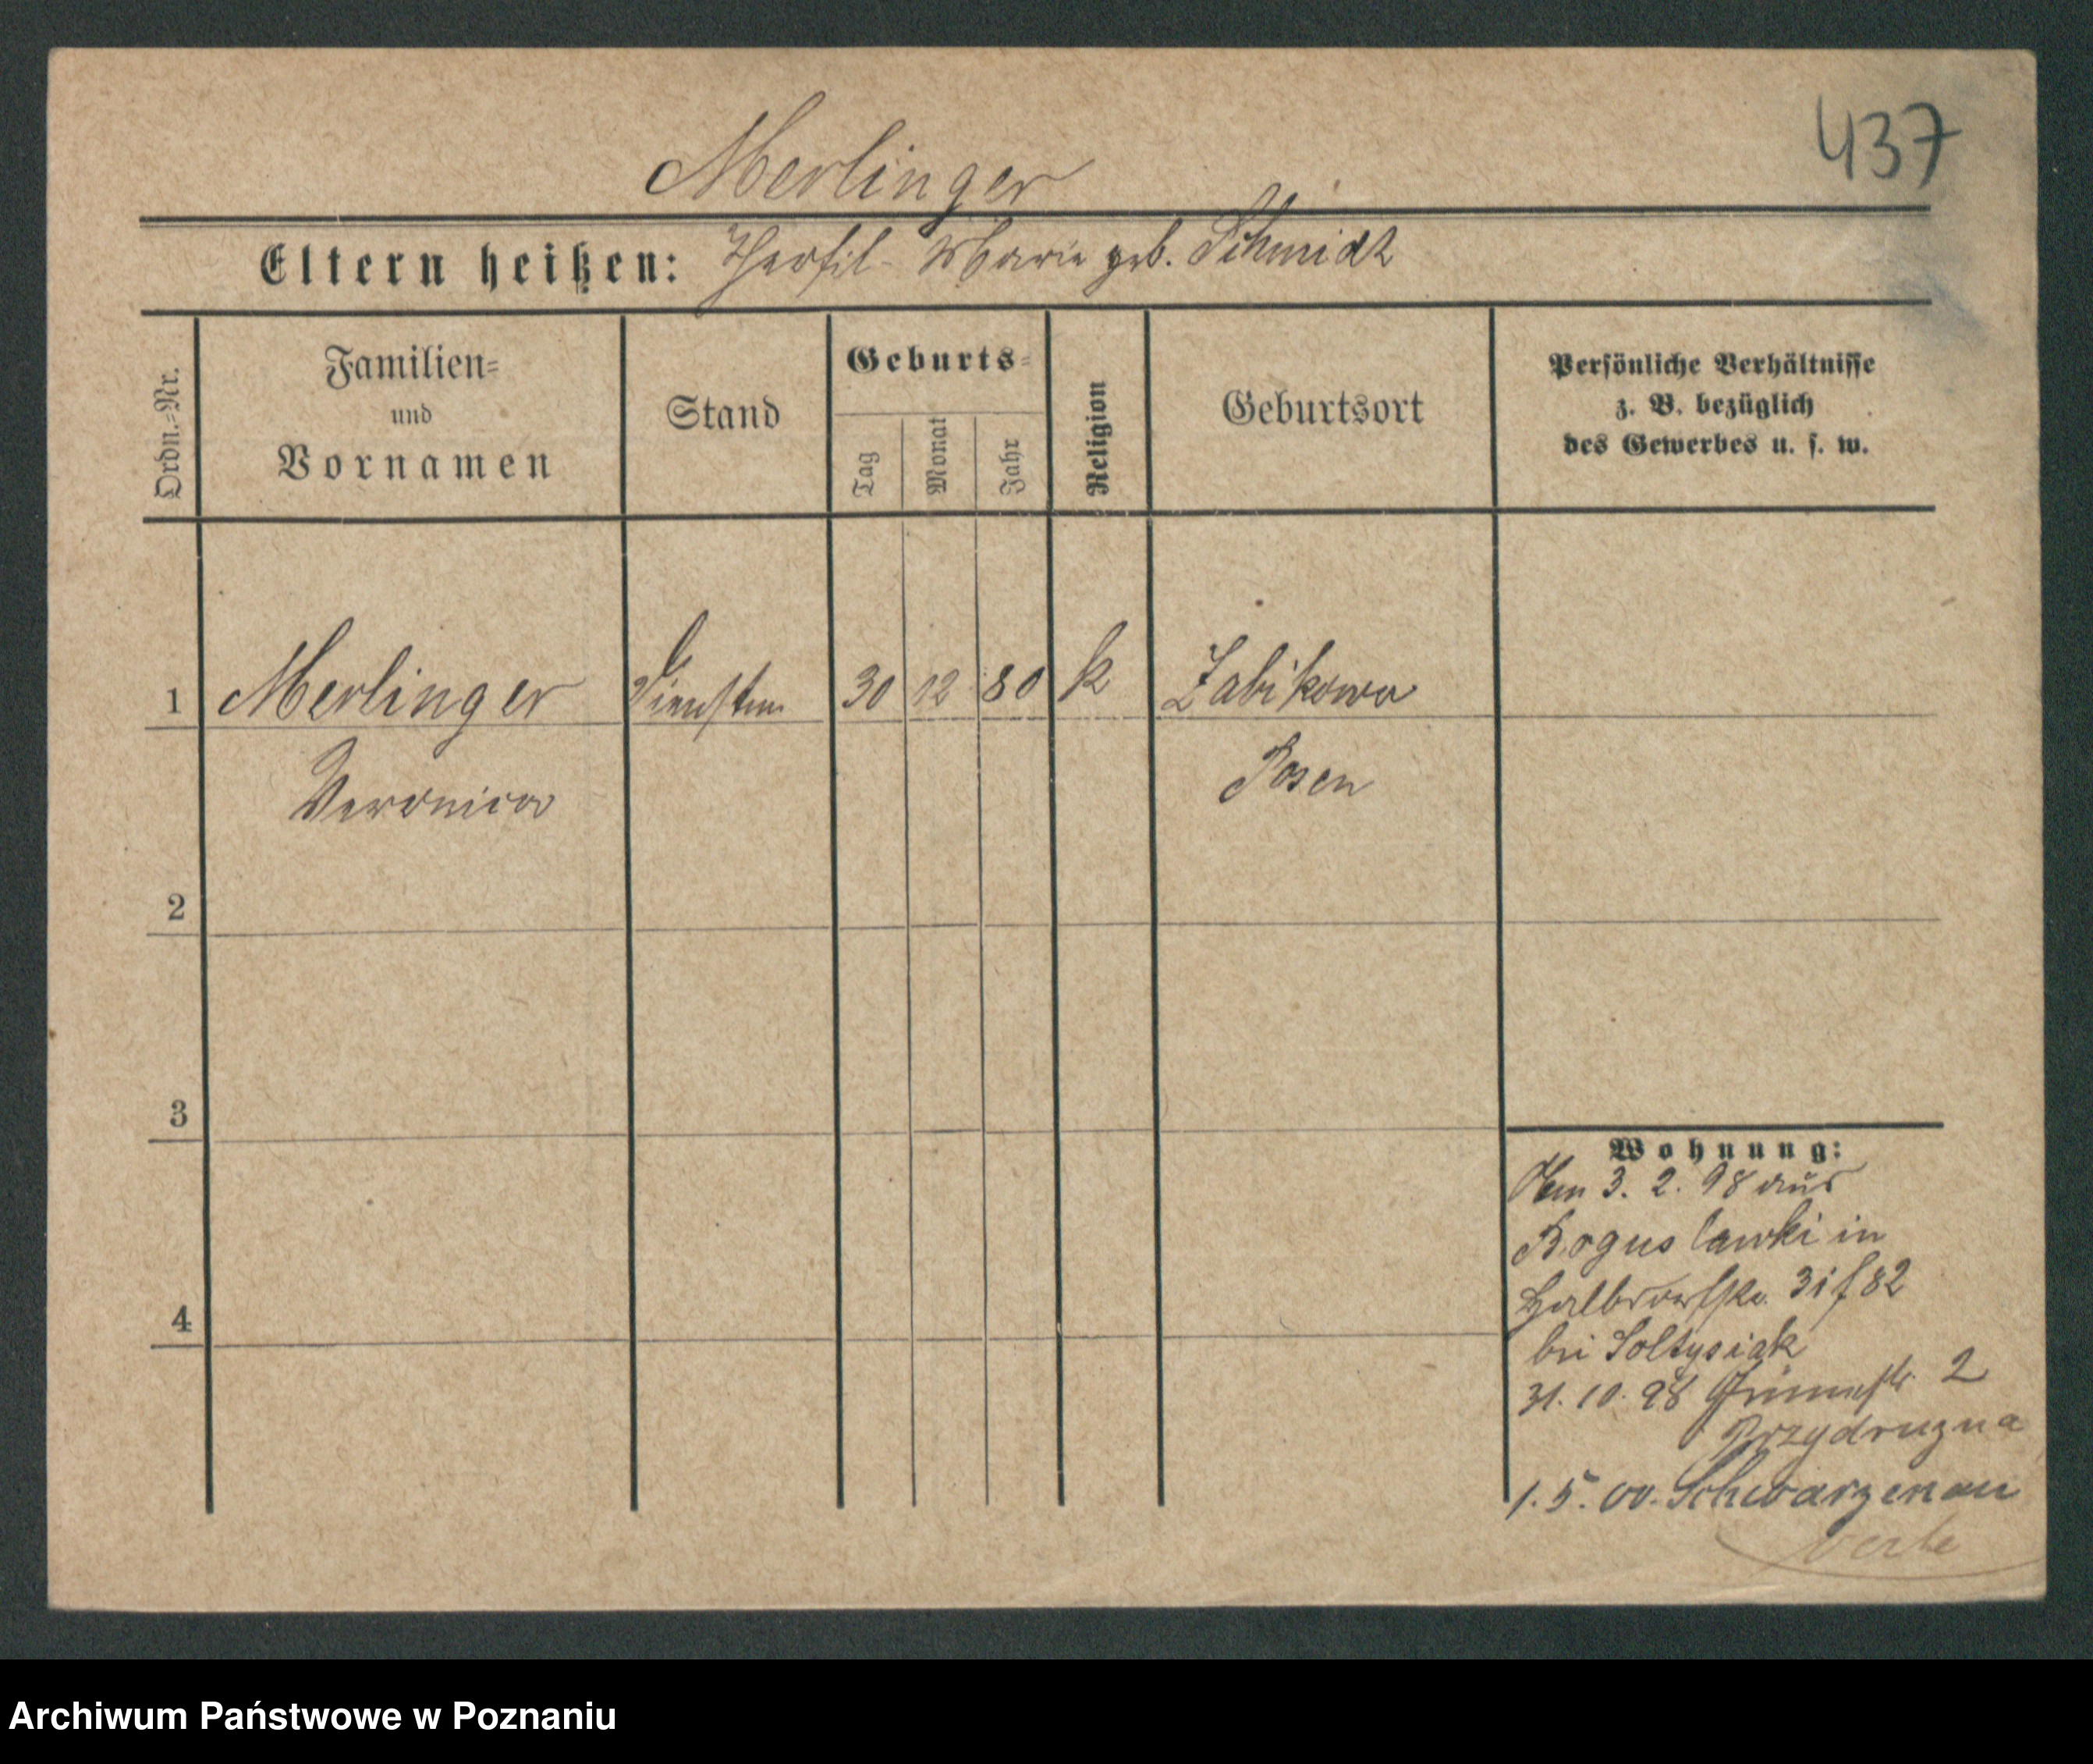 437
Merlinger
Eltern heißen: Theofil - Marie geb. Schmidt
Ordn.-Nr.
Familien-
und
Vornamen
Stand
Geburts-
Tag
Monat
Jahr
Religion
Geburtsort
Persönliche Verhältnisse
z. B. bezüglich
des Gewerbes u. s. w.
1 Merlinger 30 12 80 k Zabikowo
Veronica Posen
2
3
4
Wohnung:
3. 2. 98 aus
Boguslawki in
82
bei Soltysiak
31. 10. 98 2
Przydruzna
1. 5. 00. Schwarzenau
Archiwum Państwowe w Poznaniu